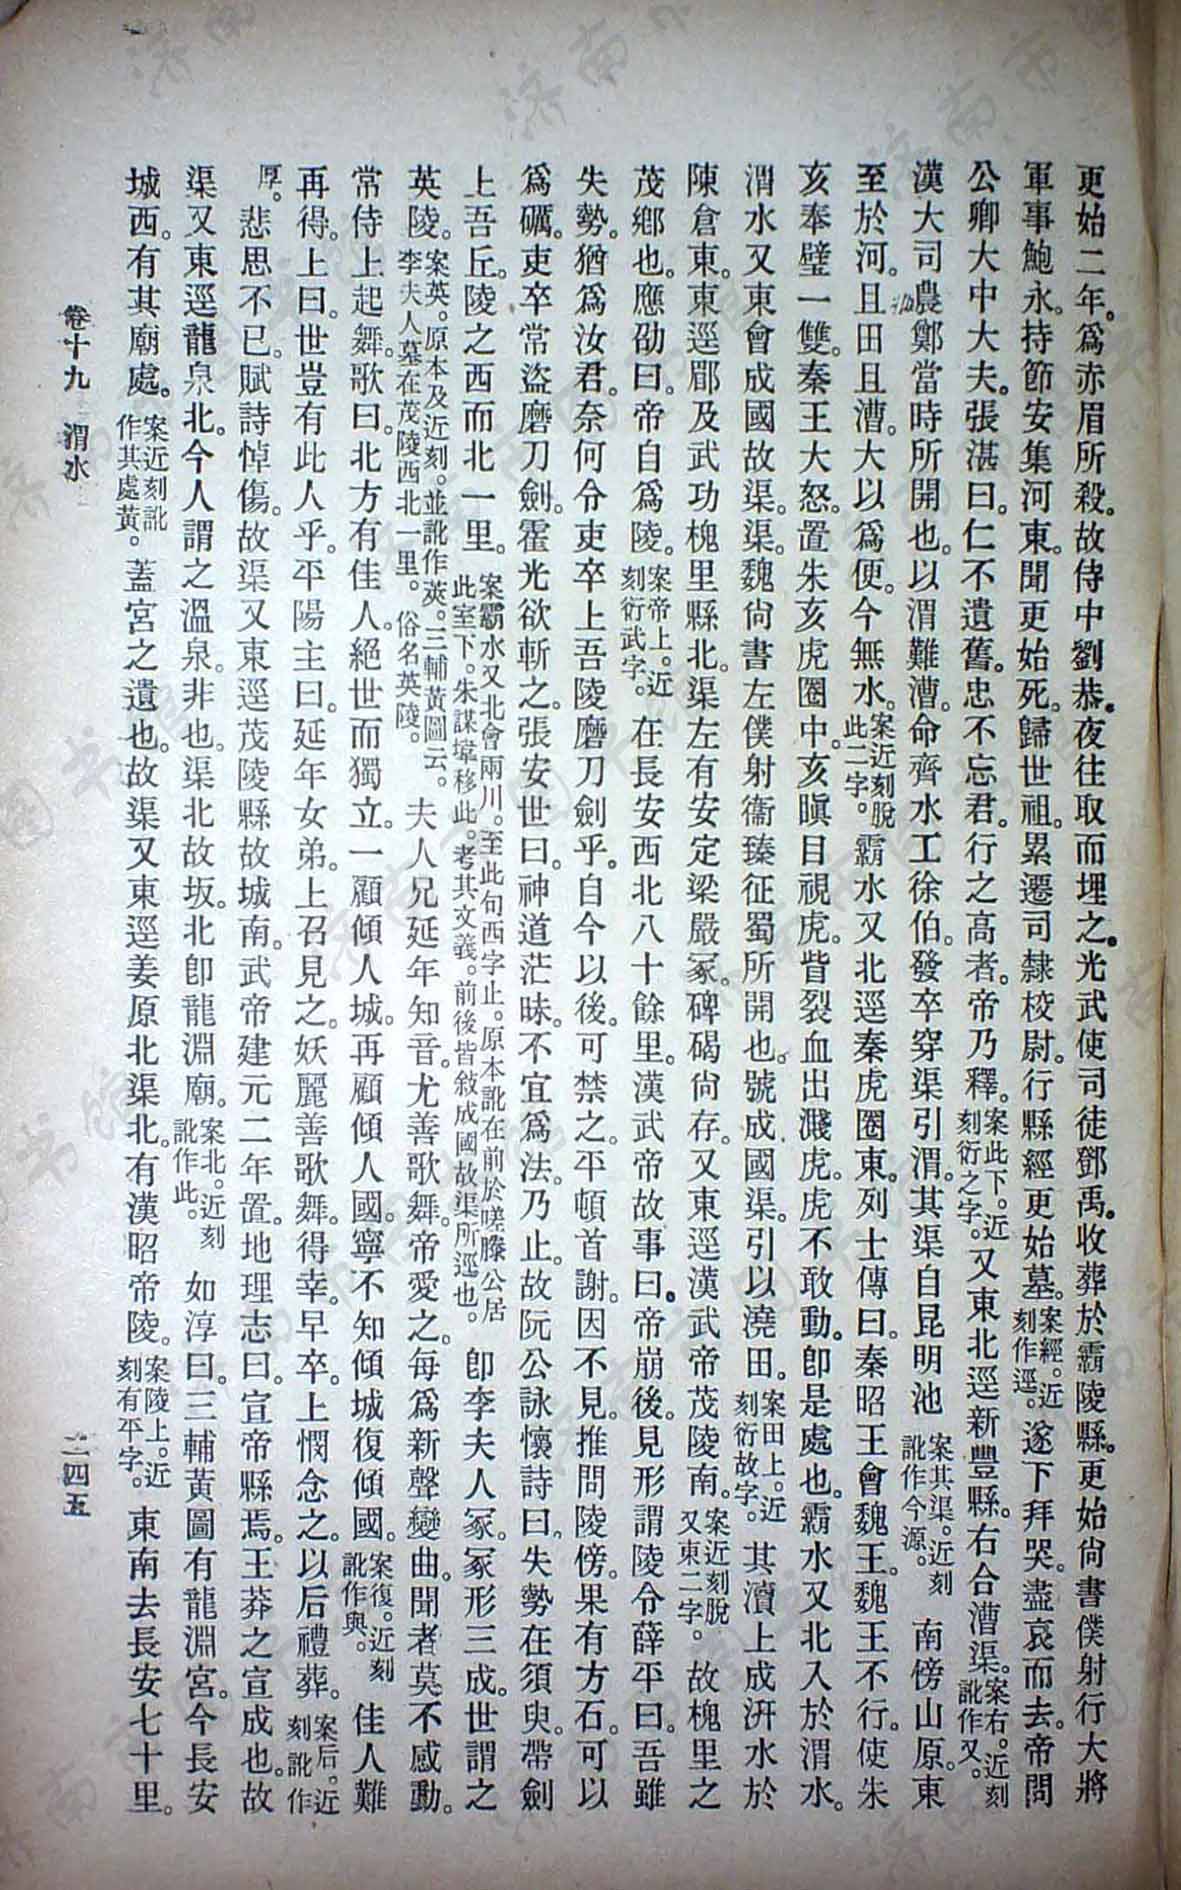 更始二年。爲赤眉所殺。故侍中劉恭。夜往取而埋之。光武使司徒鄧禹。收葬於霸陵縣。更始尙書僕射行大將
軍事鮑永。持節安集河東。聞更始死。歸世祖。累遷司隸校尉。行縣經更始墓。案經。近刻作逕。遂下拜哭。盡哀而去。帝問
公卿大中大夫。張湛曰。仁不遺舊。忠不忘君。行之高者。帝乃釋。案此下。近刻衍之字。又東北逕新豐縣。右合漕渠。案右。近刻訛作又。
漢大司農鄭當時所開也。以渭難漕。命齊水工徐伯。發卒穿渠引渭。其渠自昆明池案其渠。近刻訛作今源。南傍山原。東
至於河。且田且漕。大以爲便。今無水。案近刻脫此二字。霸水又北逕秦虎圈東。列士傳曰。秦昭王會魏王。魏王不行。使朱
亥奉璧一雙。秦王大怒。置朱亥虎圈中。亥瞋目視虎。眥裂血出濺虎。虎不敢動。卽是處也。霸水又北入於渭水。
渭水又東會成國故渠。渠。魏尙書左僕射衞臻征蜀所開也。號成國渠。引以澆田。案田上。近刻衍故字。其瀆上成汧水於
陳倉東。東逕郿及武功槐里縣北。渠左有安定梁嚴冢。碑碣尙存。又東逕漢武帝茂陵南。案近刻脫又東二字。故槐里之
茂鄉也。應劭曰。帝自爲陵。案帝上。近刻衍武字。在長安西北八十餘里。漢武帝故事曰。帝崩後。見形謂陵令薛平曰。吾雖
失勢。猶爲汝君。奈何令吏卒上吾陵磨刀劍乎。自今以後。可禁之。平頓首謝。因不見。推問陵傍。果有方石。可以
爲礪。吏卒常盜磨刀劍。霍光欲斬之。張安世曰。神道茫昧。不宜爲法。乃止。故阮公詠懷詩曰。失勢在須臾。帶劍
上吾丘。陵之西而北一里。案霸水又北會兩川。至此句西字止。原本訛在前於嗟滕公居此室下。朱謀㙔移此。考其文義。前後皆敍成國故渠所逕也。卽李夫人冢。冢形三成。世謂之
英陵。案英。原本及近刻。並訛作莢。三輔黃圖云。李夫人墓在茂陵西北一里。俗名英陵。夫人兄延年知音。尤善歌舞。帝愛之。每爲新聲變曲。聞者莫不感動。
常侍上起舞。歌曰。北方有佳人。絕世而獨立。一顧傾人城。再顧傾人國。寧不知傾城復傾國。案復。近刻訛作與。佳人難
再得。上曰。世豈有此人乎。平陽主曰。延年女弟。上召見之。妖麗善歌舞。得幸。早卒。上憫念之。以后禮葬。案后。近刻訛作
厚。悲思不已。賦詩悼傷。故渠又東逕茂陵縣故城南。武帝建元二年置。地理志曰。宣帝縣焉。王莽之宣成也。故
渠又東逕龍泉北。今人謂之溫泉。非也。渠北故坂。北卽龍淵廟。案北。近刻訛作此。如淳曰。三輔黃圖有龍淵宮。今長安
城西。有其廟處。案近刻訛作其處黃。蓋宮之遺也。故渠又東逕姜原北。渠北。有漢昭帝陵。案陵上。近刻有平字。東南去長安七十里。
卷十九 渭水
二四五